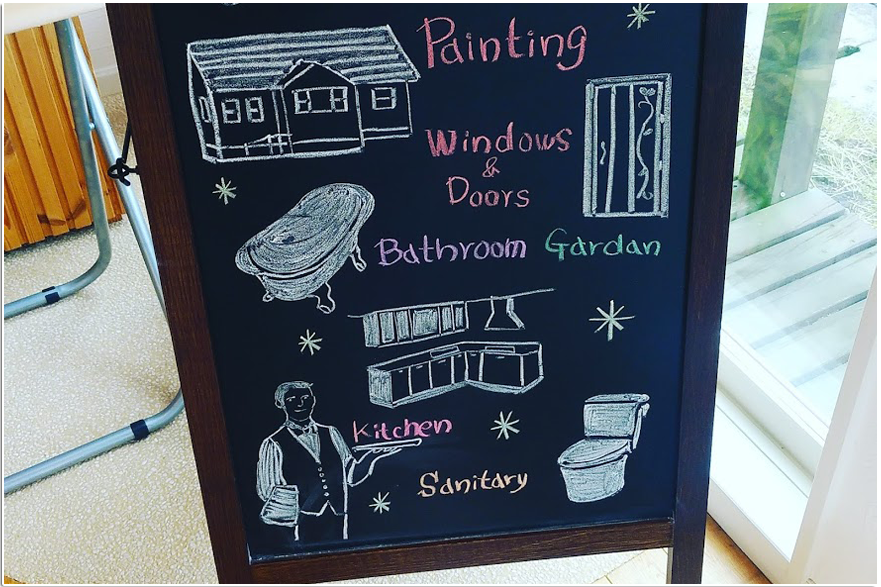 Painting
Windows
&
Doors
Bathroom Gardan
Kitchen
Sanitary